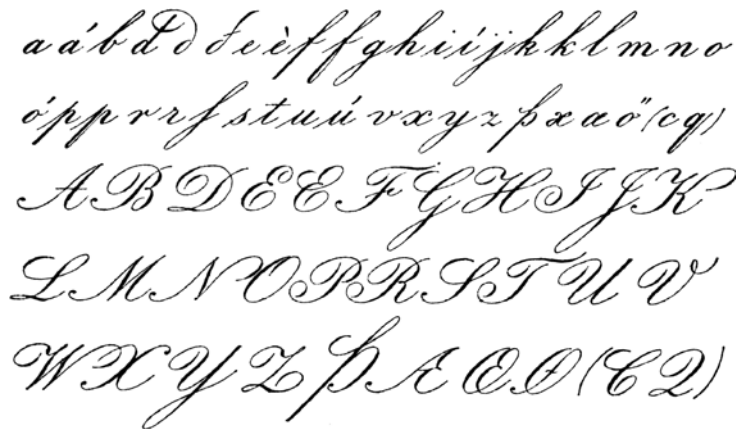 a á b d ð đ e è f f g h i í j k k l m n o
ó p p r r ſ s t u ú v x y z þ æ œ ö (c q)
A B D E E F G H I J K
L M N O P R S T U V
W X Y Z Þ Æ Œ Ø (C Q)